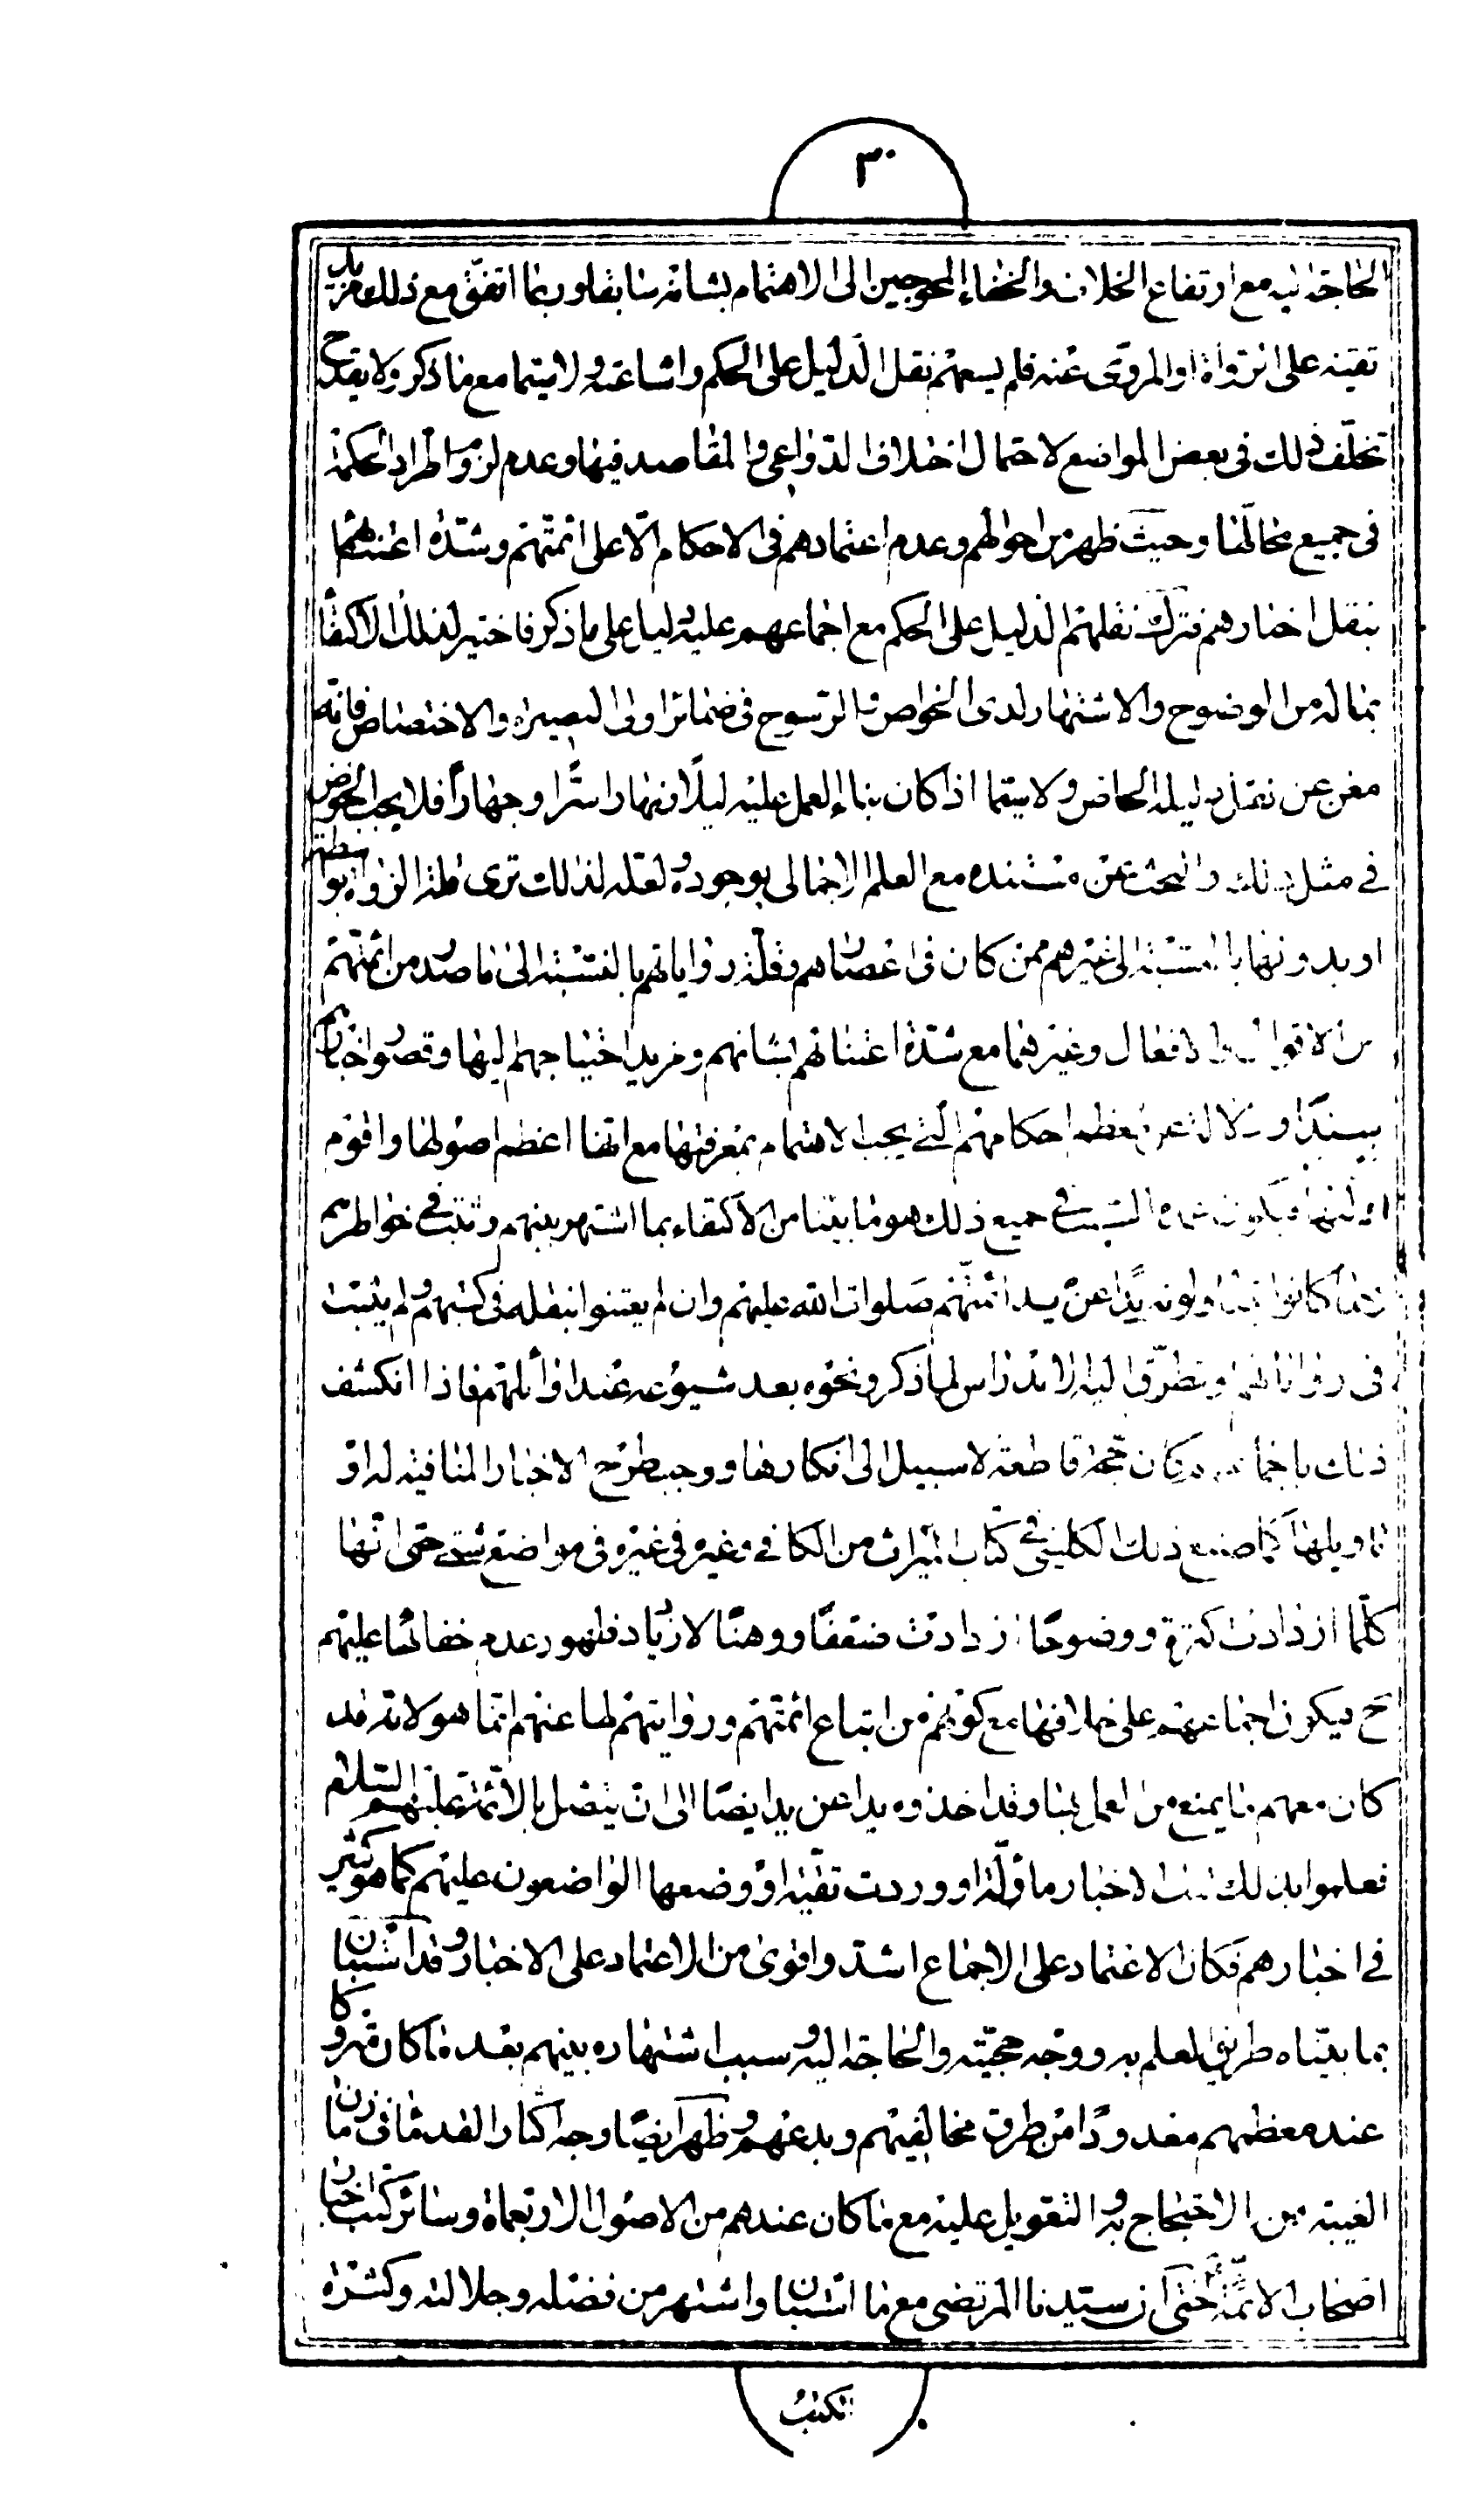 ٣٠
الحاجة اليه مع ارتفاع الخلاف والخفاء المحوجين الى الاهتمام بشانه سابقا وربما اتفق مع ذلك مزيد
تقية على الرواة او المروى عنه فلم يسعهم نقل الدليل على الحكم واشاعته ولا سيما مع ما ذكر ولا يقدح
تخلف ذلك فى بعض المواضع لاحتمال اختلاف الدواعى والمقاصد فيها وعدم لزوم اطراد الحكمة
فى جميع محالها وحيث ظهر من احوالهم وعدم اعتمادهم فى الاحكام الا على ائمتهم وشدة اعتنائهم
بنقل اخبارهم فترك نقلهم الدليل على الحكم مع اجماعهم عليه دليل على ما ذكر فاختير لذلك الاكتفاء
بما له من الوضوح والاشتهار لدى الخواص والرسوخ فى ضمائر اولى البصيرة والاختصاص فانه
مغن عن نقل دليله الخاص ولا سيما اذا كان بناء العمل عليه ليلا ونهارا سرا وجهارا فلا يجب الخوض
فى مثل ذلك والبحث عن مستنده مع العلم الاجمالى بوجوده ولعله لذلك ترى قلة الرواة بواسطة
او بدونها بالنسبة الى غيرهم ممن كان فى اعصارهم وقلة رواياتهم بالنسبة الى ما صدر من ائمتهم
من الاقوال والافعال وغيرهما مع شدة اعتنائهم بشانهم ومزيد احتياجهم اليها وقصور اخبارهم
سندا ودلالة عن معظم احكامهم التى يجب الاهتمام بمعرفتها مع انها اعظم اصولها واقوم
ادلتها فيكون عمدة السبب فى جميع ذلك هو ما بينا من الاكتفاء بما اشتهر بينهم وثبت فى خواطرهم
مما كانوا يتناولونه يدا عن يد ائمتهم صلوات الله عليهم وان لم يعتنوا بنقله فى كتبهم ولم يثبت
فى رواياتهم وتطرق اليه الاندراس لما ذكر ونحوه بعد شيوعه عند اوائلهم فاذا انكشف
ذلك باجماعهم كان حجة قاطعة لا سبيل الى انكارها ووجب طرح الاخبار المنافية له او
تاويلها كما صنع ذلك الكلينى فى كتاب الميراث من الكافى وغيره فى غيره فى مواضع شتى حتى انها
كلما ازدادت كثرة ووضوحا ازدادت ضعفا ووهنا لازدياد ظهور عدم خفائها عليهم
ح فيكون اجماعهم على خلافها مع كونهم من اتباع ائمتهم وروايتهم لها عنهم انما هو لانه قد
كان معهم ما يمنع من العمل بها وقد اخذوه يدا عن يد ايضا الى ان يتصل بالائمة عليهم السلام
فعلموا بذلك ان الاخبار ماولة او وردت تقية او وضعها الواضعون عليهم كما هو كثير
فى اخبارهم فكان الاعتماد على الاجماع اشد واقوى من الاعتماد على الاخبار وقد استبان
بما بيناه طريق العلم به ووجه حجيته والحاجة اليه وسبب اشتهاره بينهم بعد ما كان متروكا
عند معظمهم معدودا من طرق مخالفيهم وبدعهم وظهر ايضا وجه اكثار القدماء فى زمان
الغيبة من الاحتجاج به والتعويل عليه مع ما كان عندهم من الاصول الاربعمائة وسائر كتب اخبار
اصحاب الائمة حتى ان سيدنا المرتضى مع ما استبان واشتهر من فضله وجلالته وكثرة
الكتب